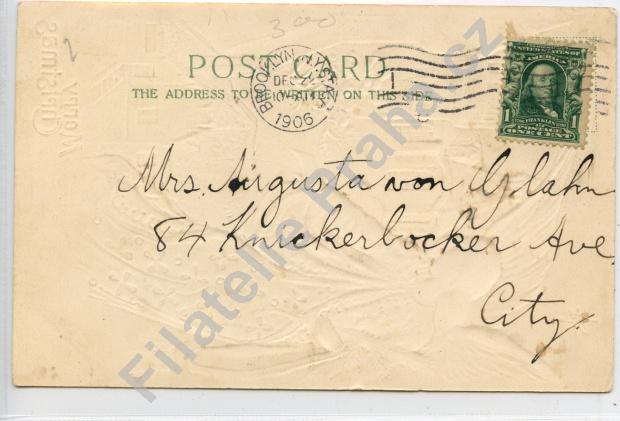 300
2
POST CARD
THE ADDRESS TO BE WRITTEN ON THIS SIDE
BROOKLYN
DEC
1906
1
UNITED STATES OF
AMERICA
FRANKLIN
1 1
POSTAGE
ONE CENT
Merry
Christmas
Mrs. Augusta von Glahn
84 Knickerbocker Ave
City.
Filatelie Praha.cz